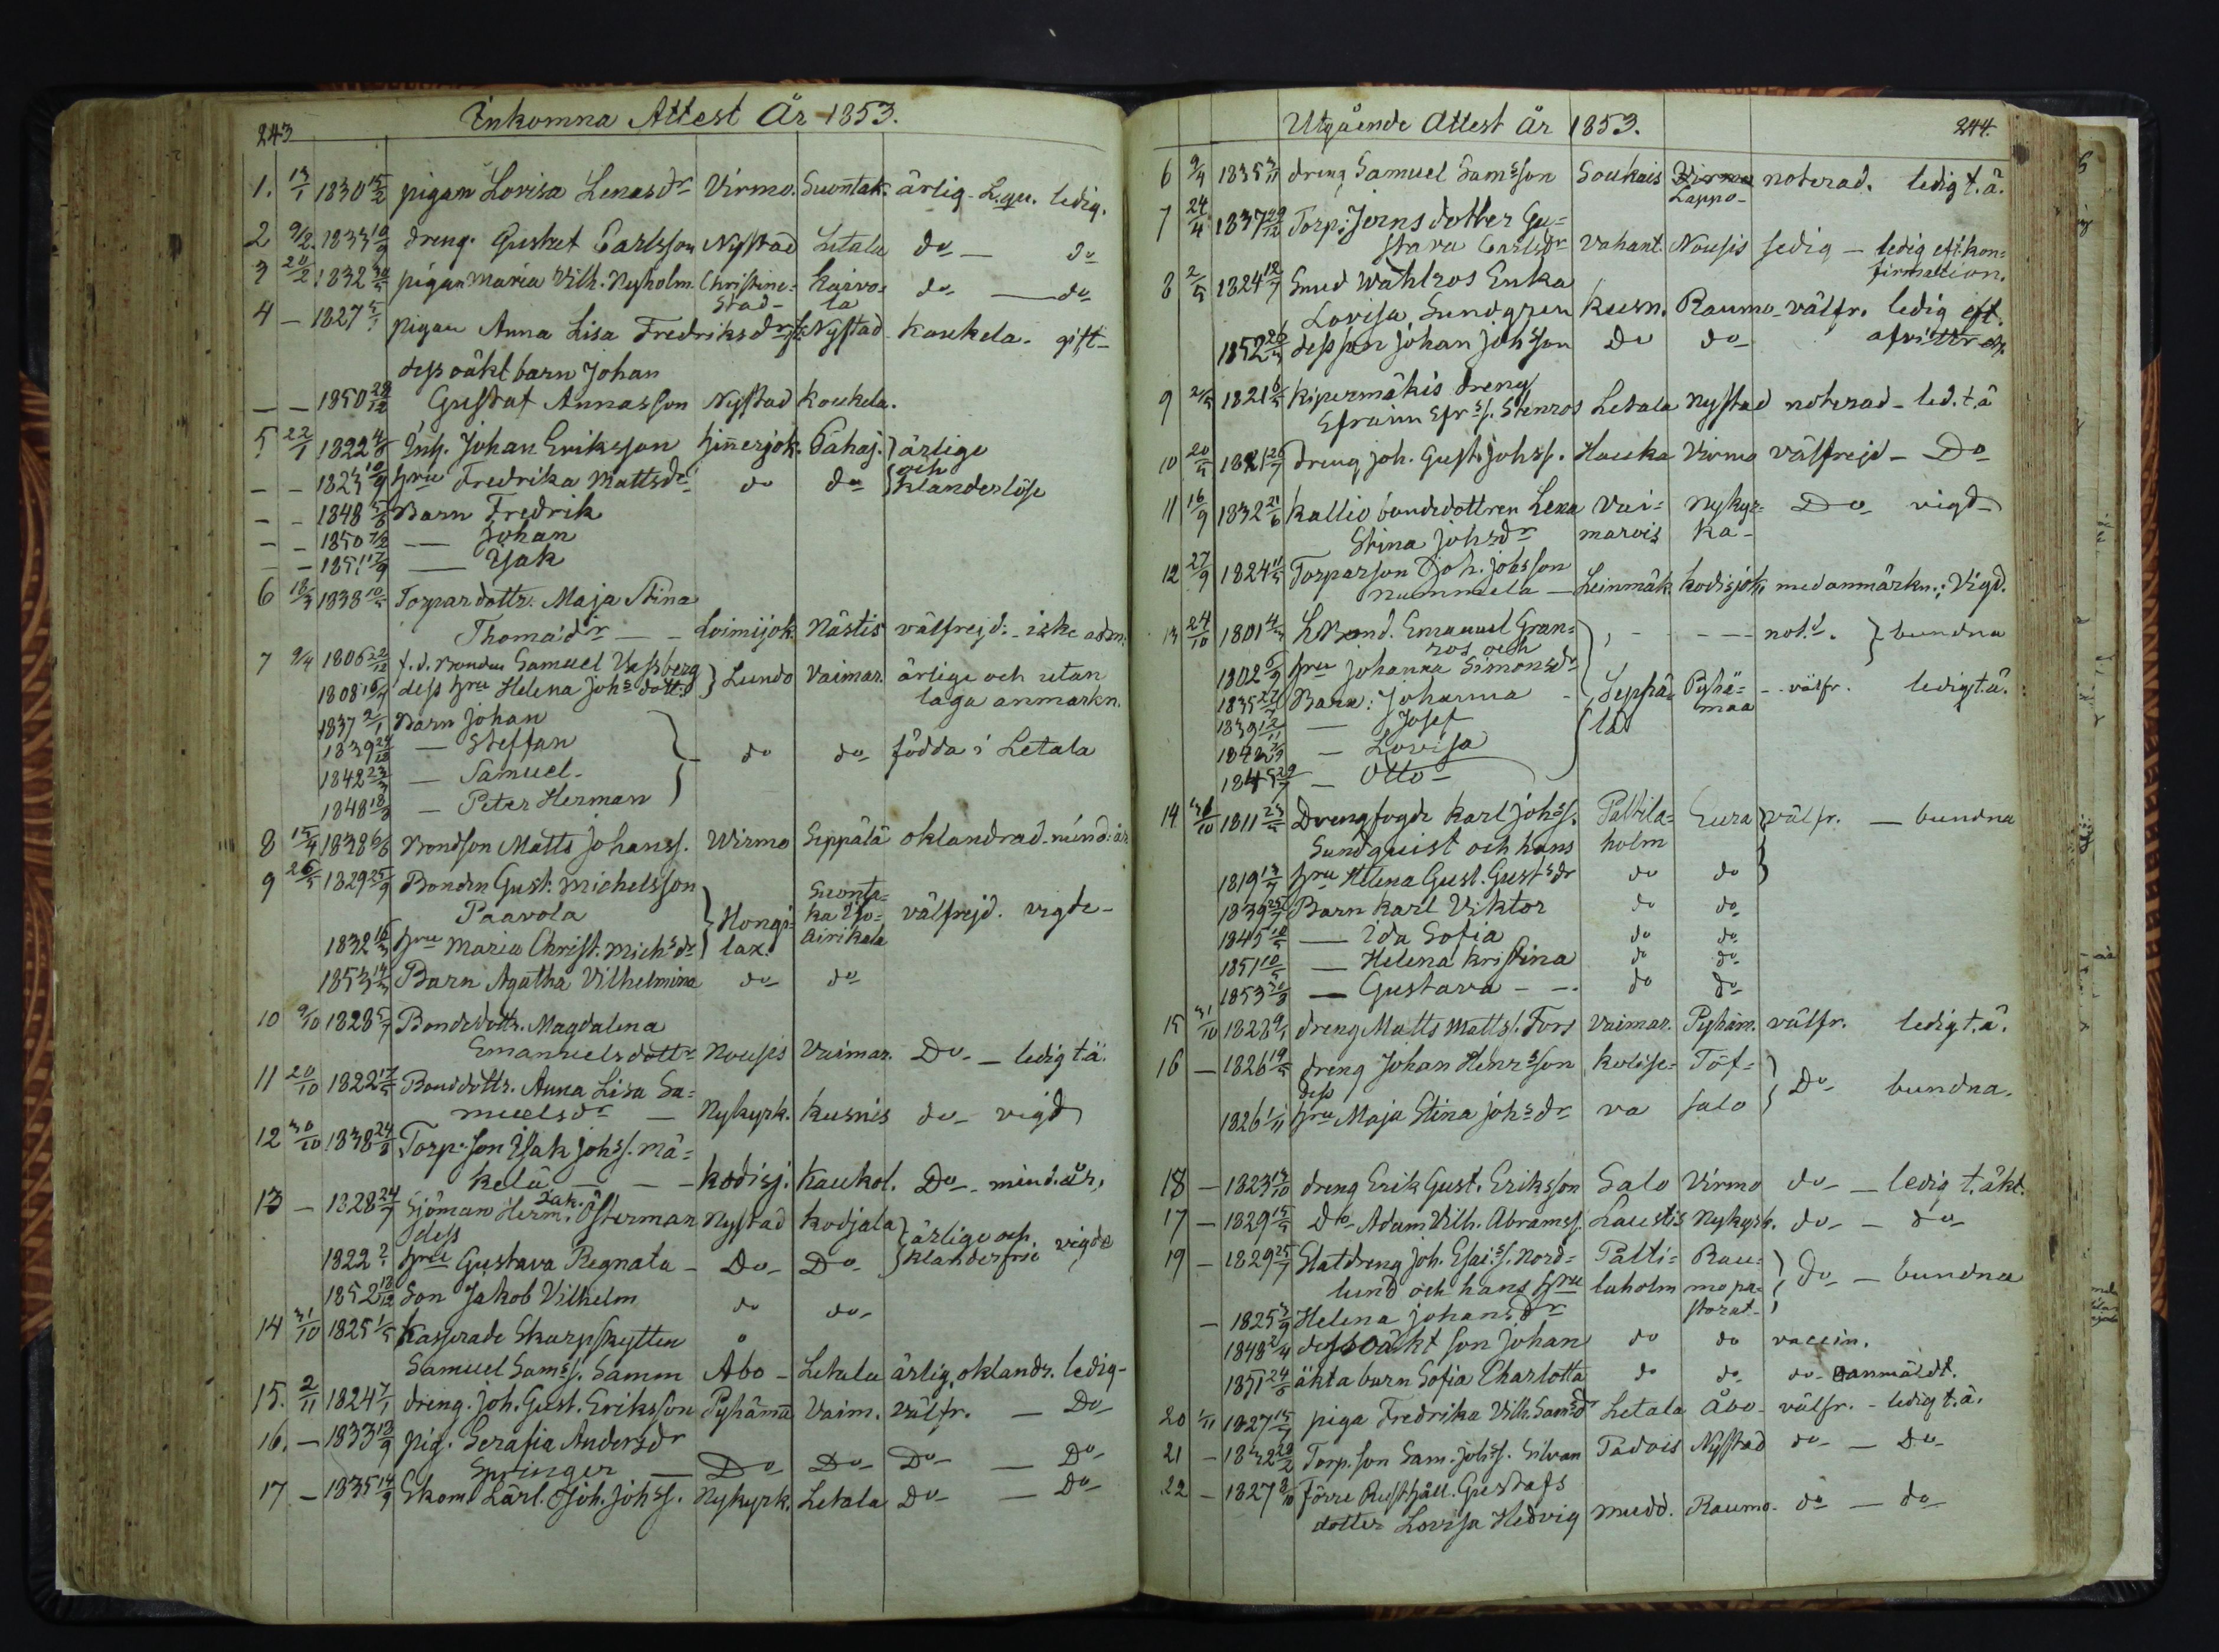 243
Inkomna Attest År 1853.
1. 13/1 1830 15/2 pigan Lovisa Lenasdr Virmo. Suontak. ärlig - L. qu. ledig.
2 9/2. 1833 10/9 dreng. Gustaf Carlsson Nystad Letala do - do
3 20/2 1832 30/5 pigan Maria Vilh. Nyholm. Christine- Kaivo- do - do
stad- la
4 - 1827 pigan Anna Lisa Fredriksdr Nystad Koukela. gift-
dess oäkt barn Johan
- - 1850 28/12 Gustaf Annasson Nystad Koukela.
5 22/1 1822 4/8 Inh. Johan Eriksson Hinerjok. Cahaj. } ärlige
och
- - 1823 10/9 hru Fredrika Mattsdr do do klanderlöse
- - 1848 5/8 Barn Fredrik
- - 1850 7/2 — Johan
- - 1851 17/9 — Isak
6 18/3 1838 10/5 Torpardottr. Maja Stina
Thomædr - - Loimijok. Nästis välfrejd. - icke adm.
7 9/4 1806 22/12 f. d. Bonden Samuel Vessberg } Lundo Vaimar. ärlige och utan
1808 16/4 dess hru Helena Johs dott. laga anmärkn.
1837 2/1 Barn Johan
1839 24/12 — Steffan
do do födda i Letala
1842 23/3 — Samuel-
1848 18/3 — Peter Herman
8 15/4 1838 6/6 Bondson Matts Johanss. Wirmo Seppälä oklandrad. mind: år
9 26/5 1829 25/9 Bonden Gust. Michelsson
Paavola } Hongi- Suonta- välfrejd. vigde-
ka Yso-
1832 16/3 hru Maria Christ. Michsdr lax. Airikala
1853 14/3 Barn Agatha Vilhelmina do do
10 9/10 1828 5/7 Bondedottr. Magdalena
Emanuelsdottr Nousis Vaimar. Do - ledig t. ä.
11 20/10 1822 17/5 Bonddottr. Anna Lisa Sa-
muelsdr - Nykyrk. Kusnis do - vigd
12 30/10 1838 24/8 Torp. son Isak Johss. Mä-
kelä - - Kodisj. Kaukol. Do - mind. år,
13 - 1828 24/7 Sjöman Herm. Zak. Österman Nystad Kodjala } ärlige och
dess
1822 ? hru Gustava Regnata - Do - Do - klanderfrie vigde
1852 18/12 Son Jakob Vilhelm do do -
14 31/10 1825 1/5 Kasserade Skarpskytten
Samuel Samss. Samm Åbo - Letala ärlig, oklandr. ledig -
15. 2/11 1824 7/1 dreng. Joh. Gust. Eriksson Pyhämä Vaim. välfr. - Do
16. - 1833 18/9 pig. Serafia Andersdr
Springer - Do Do - Do - Do
17 - 1835 14/9 Skom. Lärl. Joh. Johss. Nykyrk. Letala Do - - Do
Utgående Attest År 1853.
244.
6 9/4 1835 3/11 dreng Samuel Samsson Soukais Virmo noterad. ledig t. ä.
Lappo-
7 24/4 1837 29/12 Torp: Jerns dotter Gu-
stava Carlsdr Vahant. Nousis sedig - ledig eft. kon-
firmation.
8 2/5 1824 12/7 Smed Wahlros Enka
Lovisa Sundgren Kusn. Raumo - välfr. ledig eft.
1852 26/5 dess son Johan Johsson do do afvittr.
9 2/5 1821 6/5 Kipermäkis dreng
Efraim Efrs. Stenros Letala Nystad noterad - led. t. ä
10 20/5 1821 26/7 dreng Joh. Gust. Johss. Hauka Virmo välfrejd - Do
11 16/9 1832 21/6 Kallio bondedottren Lena Vai- Nykyr- Do - vigd -
Stina Johsdr marois ka -
12 27/9 1824 11/5 Torparson Joh. Johsson
Nummela - Leinmäk. Kodisjok. med anmärkn.: Vigd.
13 24/10 1801 4/3 L. Bond. Emanuel Gran- - - - not.d. } bundna
ros och
1802 6/9 hru Johanna Simonsdr
1835 27/7 Barn: Johanna - Seppä- Pyhä- - välfr. ledig t. ä.
maa
1839 12/11 — Josef lä
1842 — Lovisa
1845 29/7 — Otto -
14 30/10 1811 23/5 Drengfogde Karl Johss. Paltila- Eura välfr. - bundna
Sundquist och hans holm
1819 13/7 hru Helena Gust. Gustsdr do do
1839 25/7 Barn Karl Viktor do do
1845 10/5 — Ida Sofia do do
1851 10/5 — Helena Kristina do do
1853 30/8 — Gustava - - do do
15 31/10 1822 9/1 dreng Matts Mattss. Fors Vaimar. Pyhäm. välfr. ledig t. ä.
16 - 1826 19/5 dreng Johan Henrsson Kolise- Töf-
dess } Do - bundna.
1826 1/11 hru Maja Stina Johsdr va salo
18 - 1823 13/10 dreng Erik Gust. Eriksson Salo Virmo do - ledig t. äkt.
17 - 1829 15/5 do - Adam Vilh. Abramss. Laustis Nykyrk. do - do
19 - 1829 25/7 Statdreng Joh. Esai.s. Nord- Palti- Rau-
lund och hans hru laholm mo pa- } do - bundna
- 1825 3/9 Helena Johansdr storat -
1848 2/4 dess oäkt son Johan do do vaccin.
1851 24/6 äkta barn Sofia Charlotta do do do - oanmäldt.
20 1/11 1827 15/7 piga Fredrika Vilh. Samsdr Letala Åbo - välfr. - ledig t. ä.
21 - 1832 28/2 Torp. son Sam. Johss. Silvan Padois Nystad do - do
22 - 1827 8/10 Förre Rusthåll. Gustafs
dotter Lovisa Hedvig mudd. Raumo - do - do